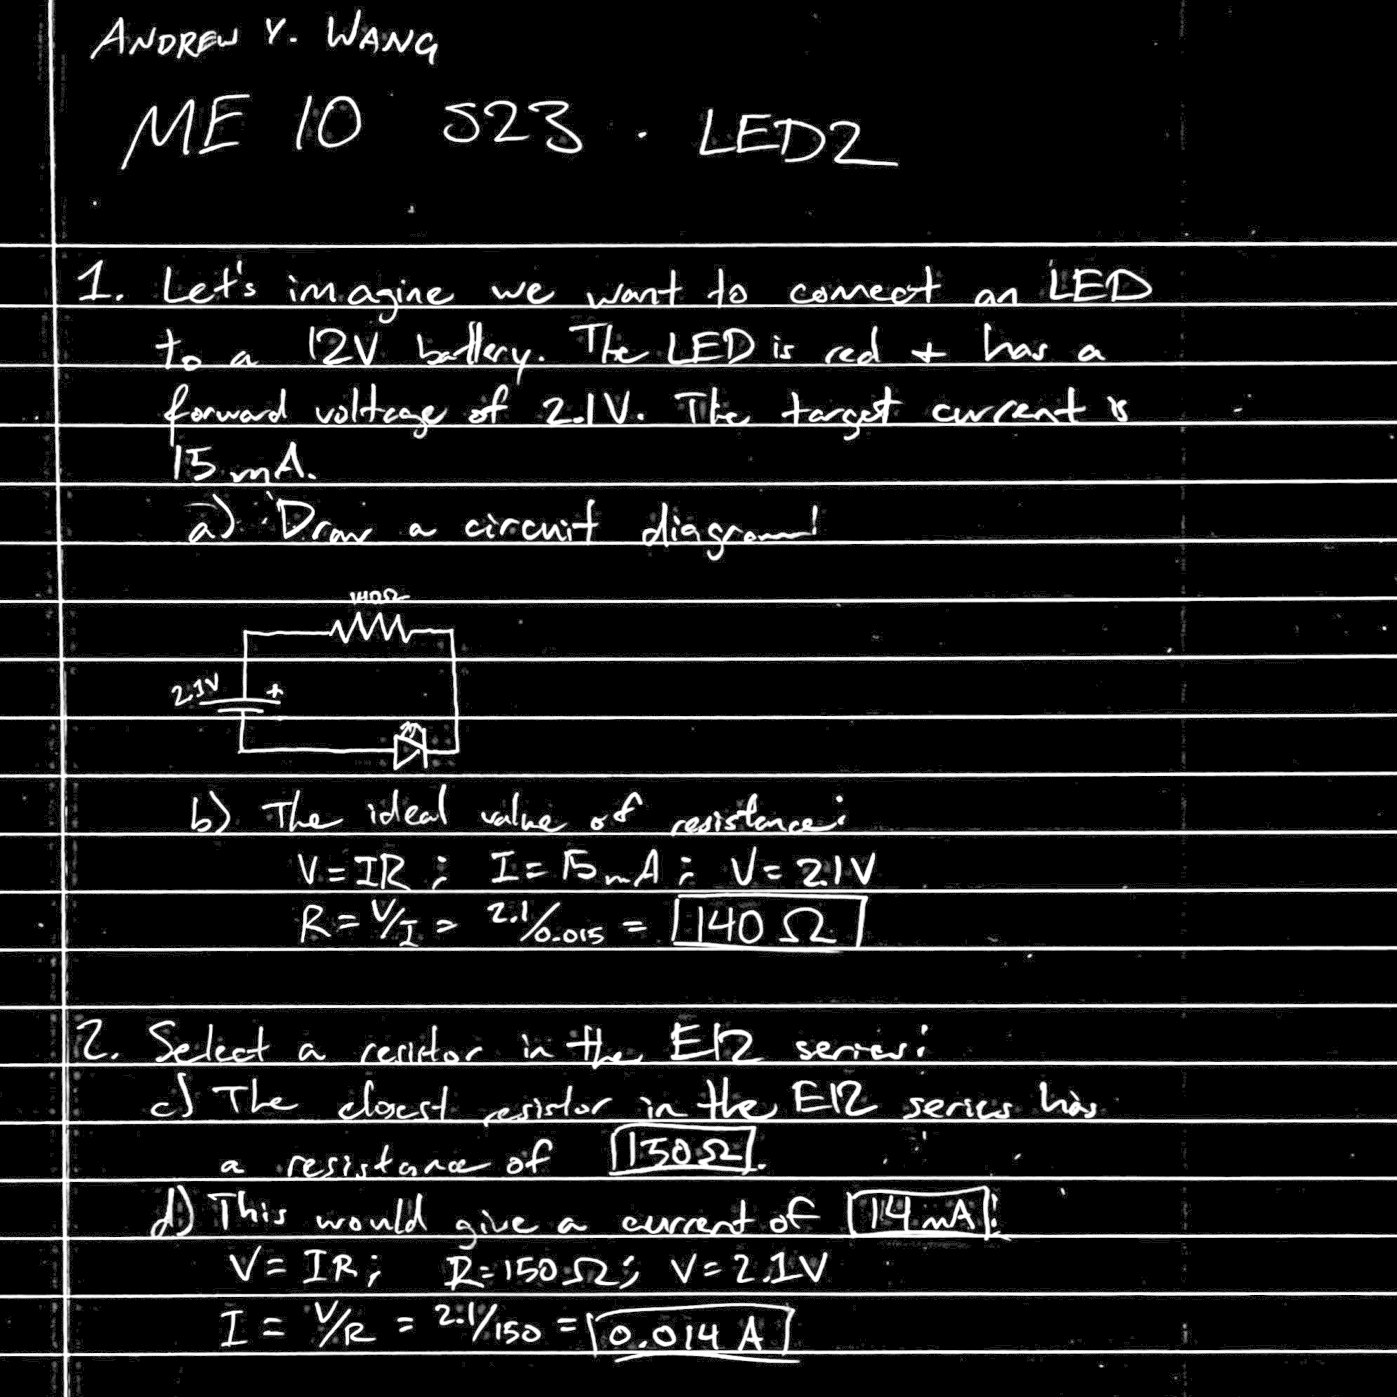 ANDREW Y. WANG
ME 10 S23 · LED2
1. Let's imagine we want to connect an LED
to a 12V battery. The LED is red + has a
forward voltage of 2.1V. The target current is
15 mA.
a) Draw a circuit diagram!
140Ω
2.1V +
b) The ideal value of resistance:
V = IR ; I = 15 mA ; V = 2.1V
R = V/I = 2.1/0.015 = 140 Ω
2. Select a resistor in the E12 series:
c) The closest resistor in the E12 series has
a resistance of 150Ω.
d) This would give a current of 14 mA:
V = IR; R = 150Ω; V = 2.1V
I = V/R = 2.1/150 = 0.014 A